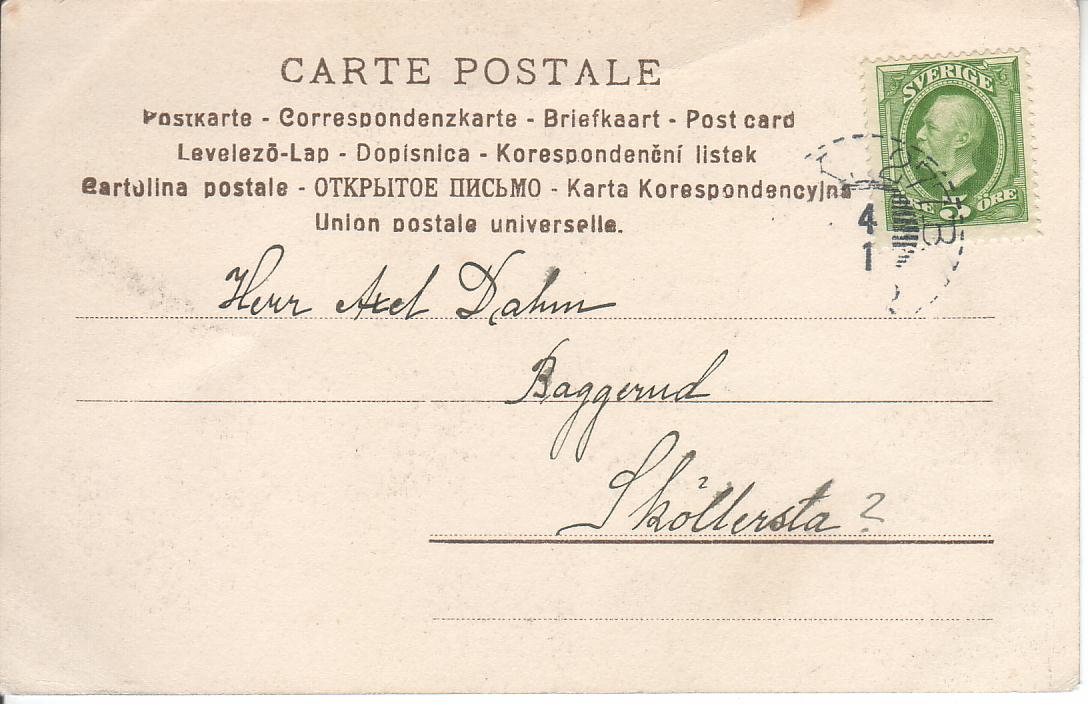 CARTE POSTALE
Postkarte - Correspondenzkarte - Briefkaart - Post card
Levelezõ-Lap - Dopisnica - Korespondenční listek
Cartolina postale - ОТКРЫТОЕ ПИСЬМО - Karta Korespondencyjna
Union postale universelle.
SVERIGE
5 ÖRE
4
1
Herr Axel Dahm
Baggerud
Sköllersta ?